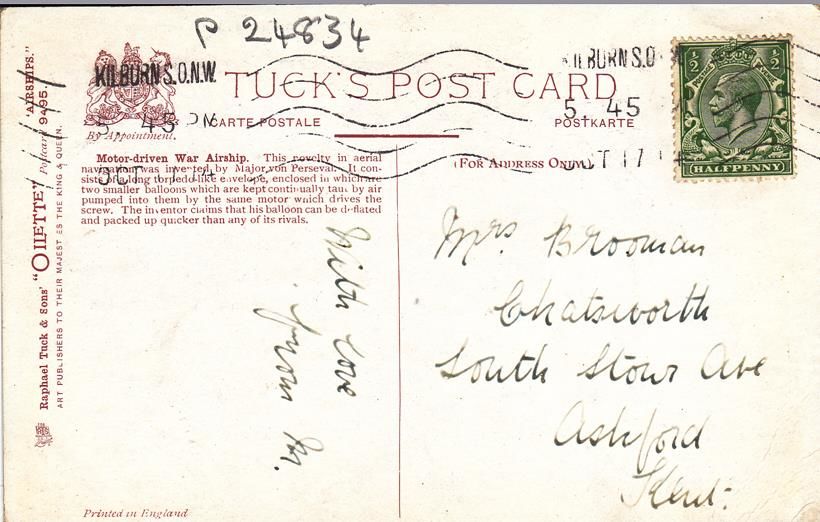 P 24834
KILBURN S.O. N.W.
5 45 PM
OCT 17 14
KILBURN S.O
5 45
OCT 17 14
TUCK'S POST CARD
CARTE POSTALE
POSTKARTE
By Appointment.
(FOR ADDRESS ONLY)
½ ½
HALFPENNY
Motor-driven War Airship. This novelty in aerial
navigation was invented by Major von Perseval. It con-
sists of a long torpedo-like envelope, enclosed in which are
two smaller balloons which are kept continually taut by air
pumped into them by the same motor which drives the
screw. The inventor claims that his balloon can be deflated
and packed up quicker than any of its rivals.
With love
from M.
Mrs Brooman
Chatsworth
South Stour Ave
Ashford
Kent.
Raphael Tuck & Sons' "OILETTE" Postcard 9495. "AIRSHIPS."
ART PUBLISHERS TO THEIR MAJESTIES THE KING & QUEEN.
Printed in England